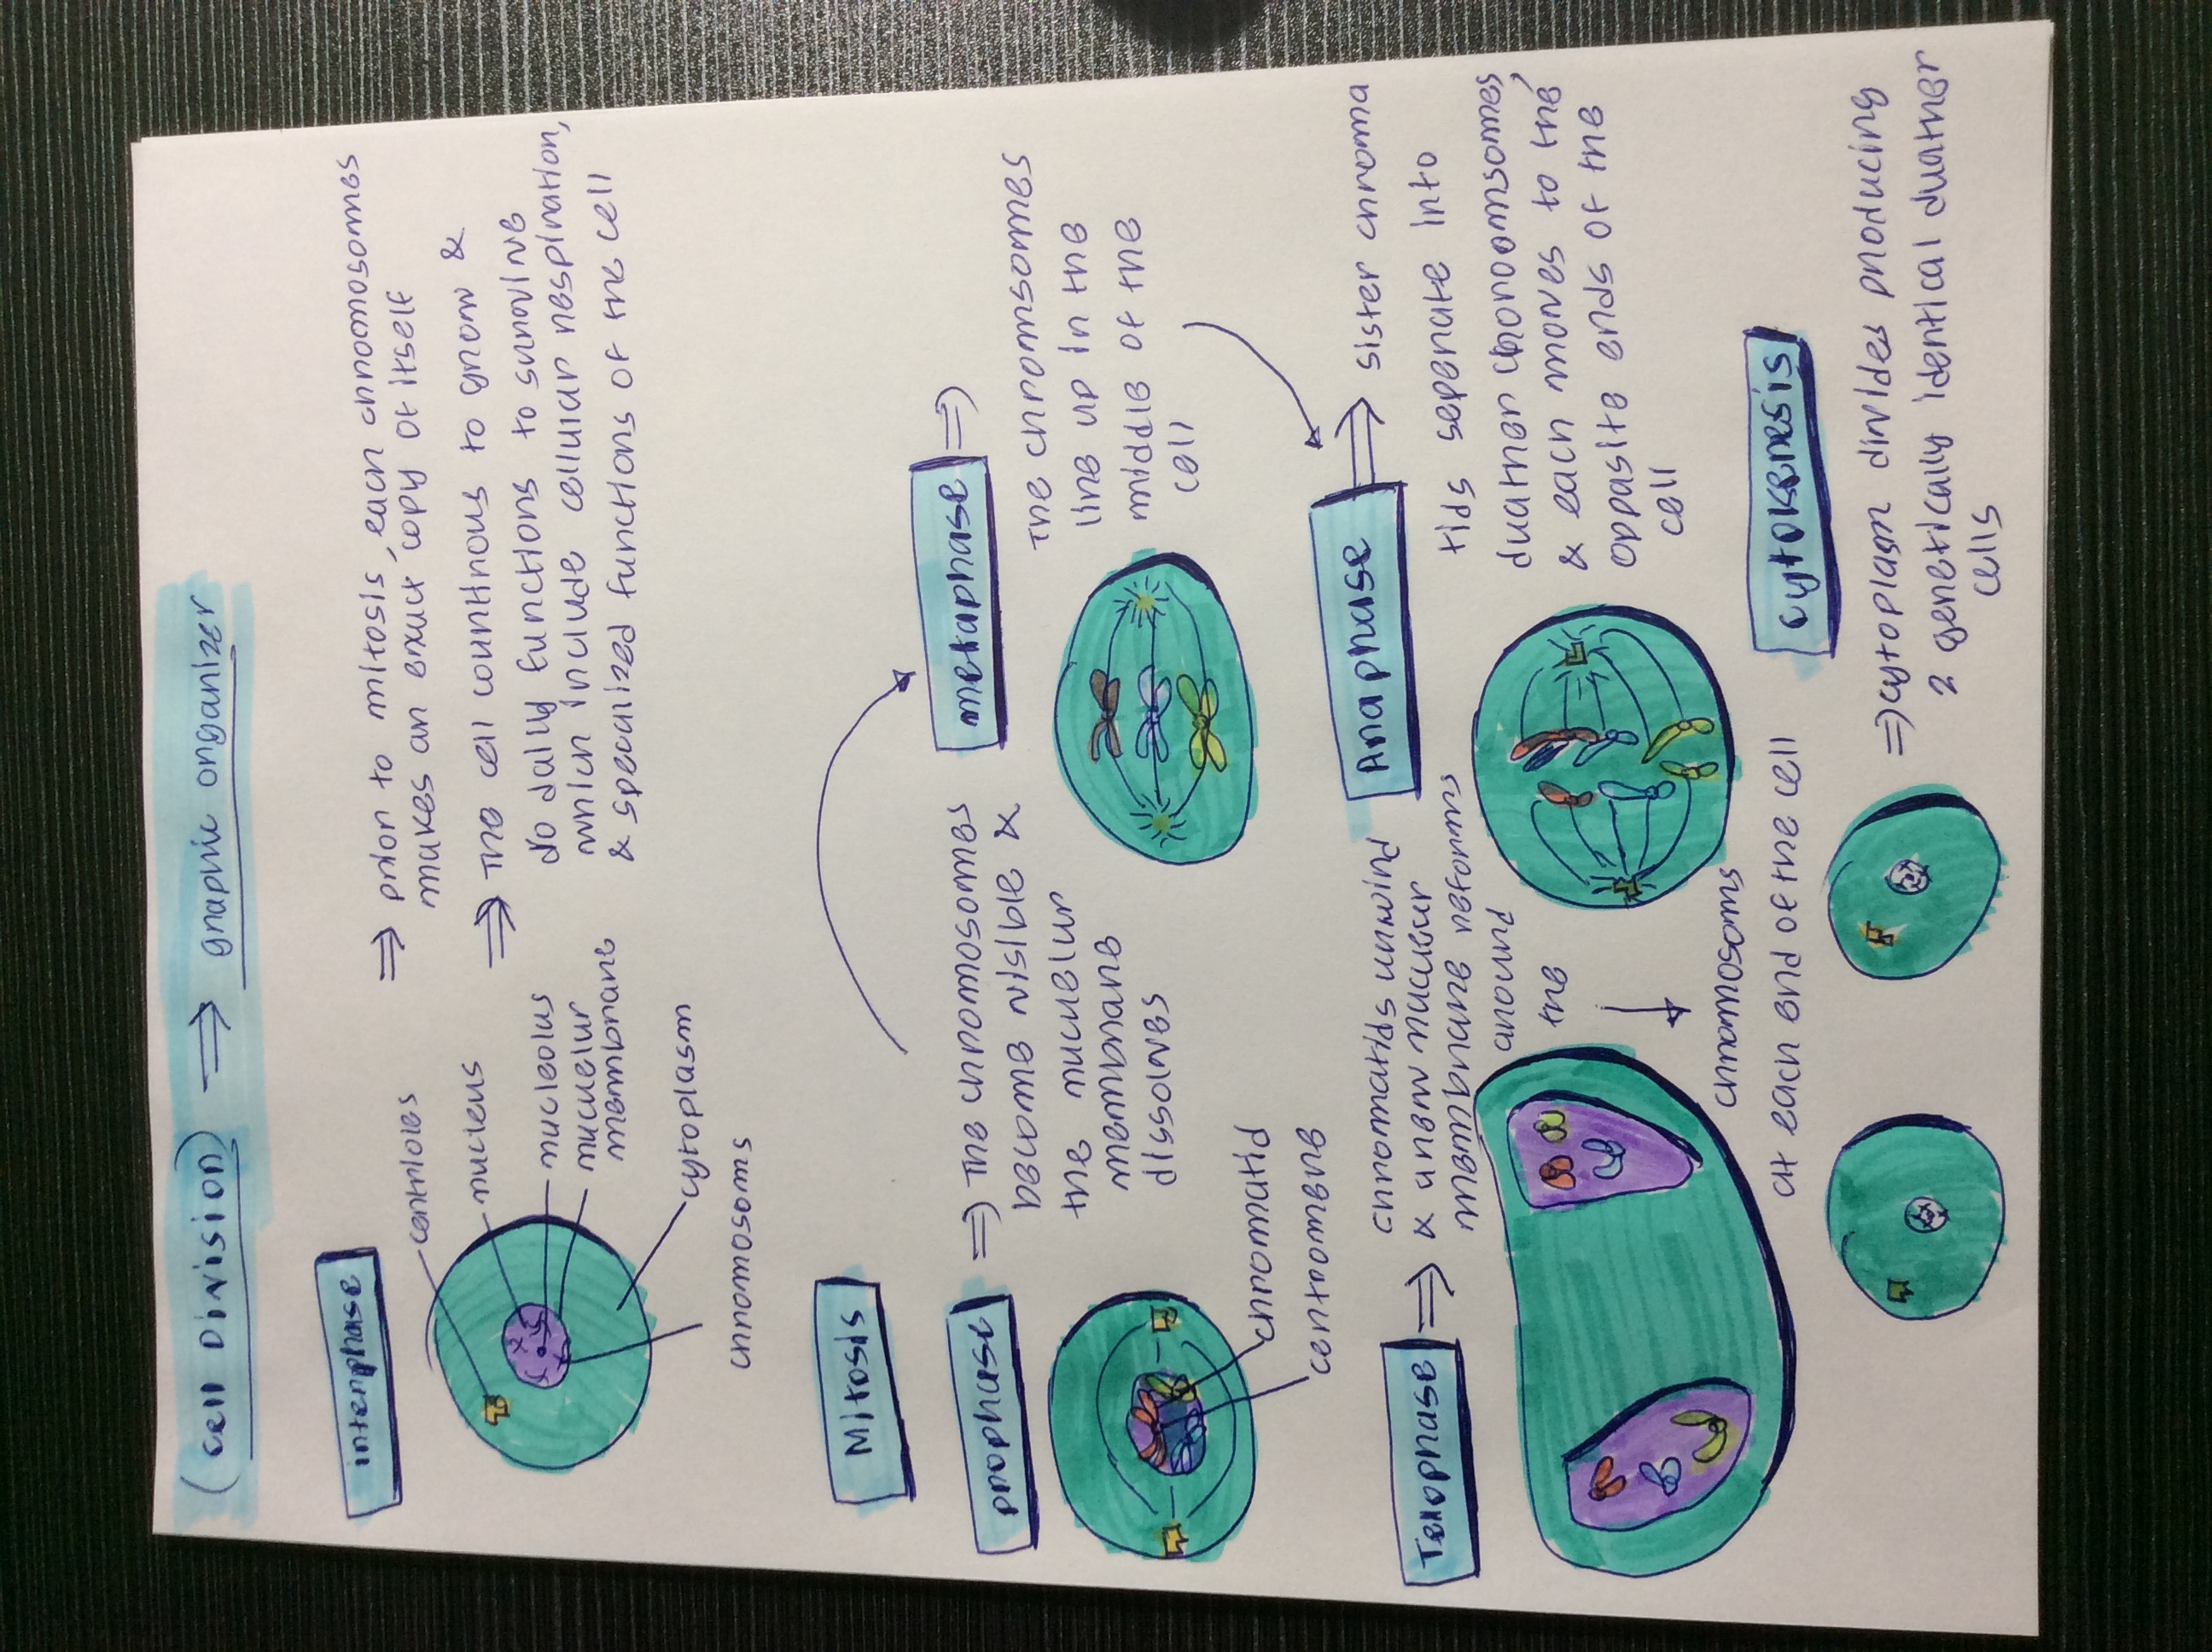 (cell Division) ⇒ graphic organizer
interphase
centrioles
nucleus
nucleolus
nuceulur
membrane
cytoplasm
chromosoms
⇒ prior to mitosis, each chroomosomes
makes an exact copy of itself
⇒ The cell countinous to grow &
do daily functions to survive
which include cellular respiration,
& specialized functions of the cell
Mitosis
prophase
⇒ The chromosomes
become visible &
the nucuelur
membrane
dissolves
chroomatid
centroomene
metaphase ⇒
The chromsomes
line up in the
middle of the
cell
Anaphase ⇒ sister chroma
tids seperate into
duather choroomsomes,
& each moves to the
oppasite ends of the
cell
Telophase ⇒
chromatids unwind
& a new nuceur
membrane reforms
around
the
↓
chromosoms
at each end of the cell
cytokenesis
⇒ cytoplasm divides producing
2 genetically identical duather
cells